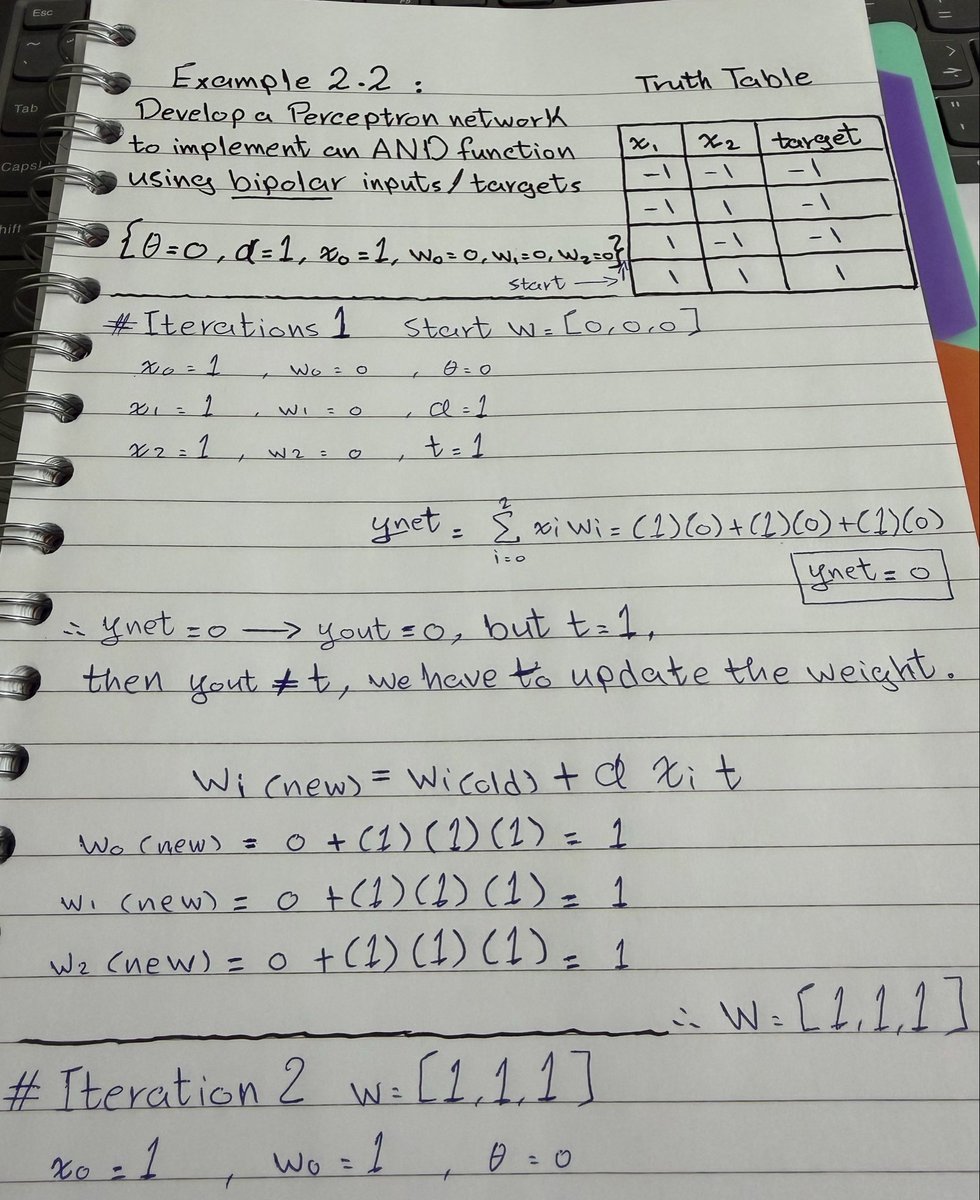 Esc
Tab
Caps
hift
Example 2.2 :
Develop a Perceptron network
to implement an AND function
using bipolar inputs/targets
{θ=0, α=1, x₀=1, w₀=0, w₁=0, w₂=0}
start →
Truth Table
x₁ x₂ target
-1 -1 -1
-1 1 -1
1 -1 -1
1 1 1
# Iterations 1 Start w=[0,0,0]
x₀ = 1 , w₀ = 0 , θ=0
x₁ = 1 , w₁ = 0 , α=1
x₂ = 1 , w₂ = 0 , t=1
ynet = Σ xi wi = (1)(0)+(1)(0)+(1)(0)
2
i=0
ynet = 0
∴ ynet =0 → yout =0, but t=1,
then yout ≠ t, we have to update the weight.
wi (new) = wi(old) + α xi t
w₀ (new) = 0 + (1) (1) (1) = 1
w₁ (new) = 0 + (1) (1) (1) = 1
w₂ (new) = 0 + (1) (1) (1) = 1
∴ w=[1,1,1]
# Iteration 2 w=[1,1,1]
x₀ = 1 , w₀ = 1 , θ = 0